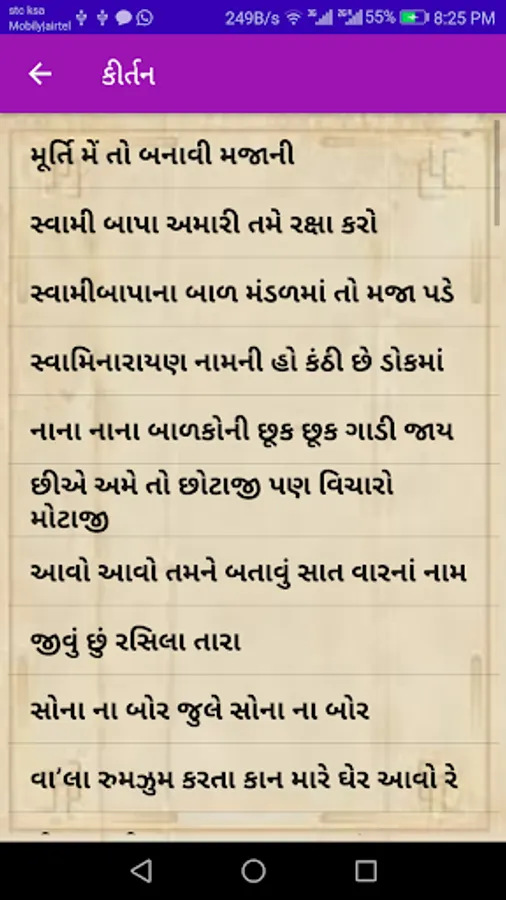 stc ksa
Mobily|airtel
249B/s
55%
8:25 PM
કીર્તન
મૂર્તિ મેં તો બનાવી મજાની
સ્વામી બાપા અમારી તમે રક્ષા કરો
સ્વામીબાપાના બાળ મંડળમાં તો મજા પડે
સ્વામિનારાયણ નામની હો કંઠી છે ડોકમાં
નાના નાના બાળકોની છૂક છૂક ગાડી જાય
છીએ અમે તો છોટાજી પણ વિચારો
મોટાજી
આવો આવો તમને બતાવું સાત વારનાં નામ
જીવું છું રસિલા તારા
સોના ના બોર જુલે સોના ના બોર
વા'લા રુમઝુમ કરતા કાન મારે ઘેર આવો રે